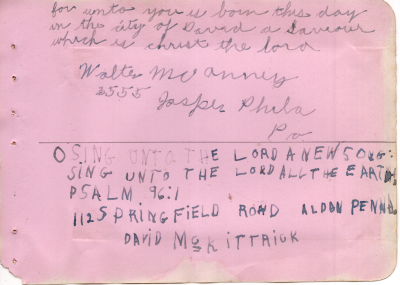 for unto you is born this day
in the city of David a Saviour
which is christ the lord
Walter McAnney
2555
Jasper Phila
Pa
O SING UNTO THE LORD A NEW SONG:
SING UNTO THE LORD ALL THE EARTH.
PSALM 96:1
112 SPRINGFIELD ROAD ALDAN PENNA.
DAVID McKITTRICK